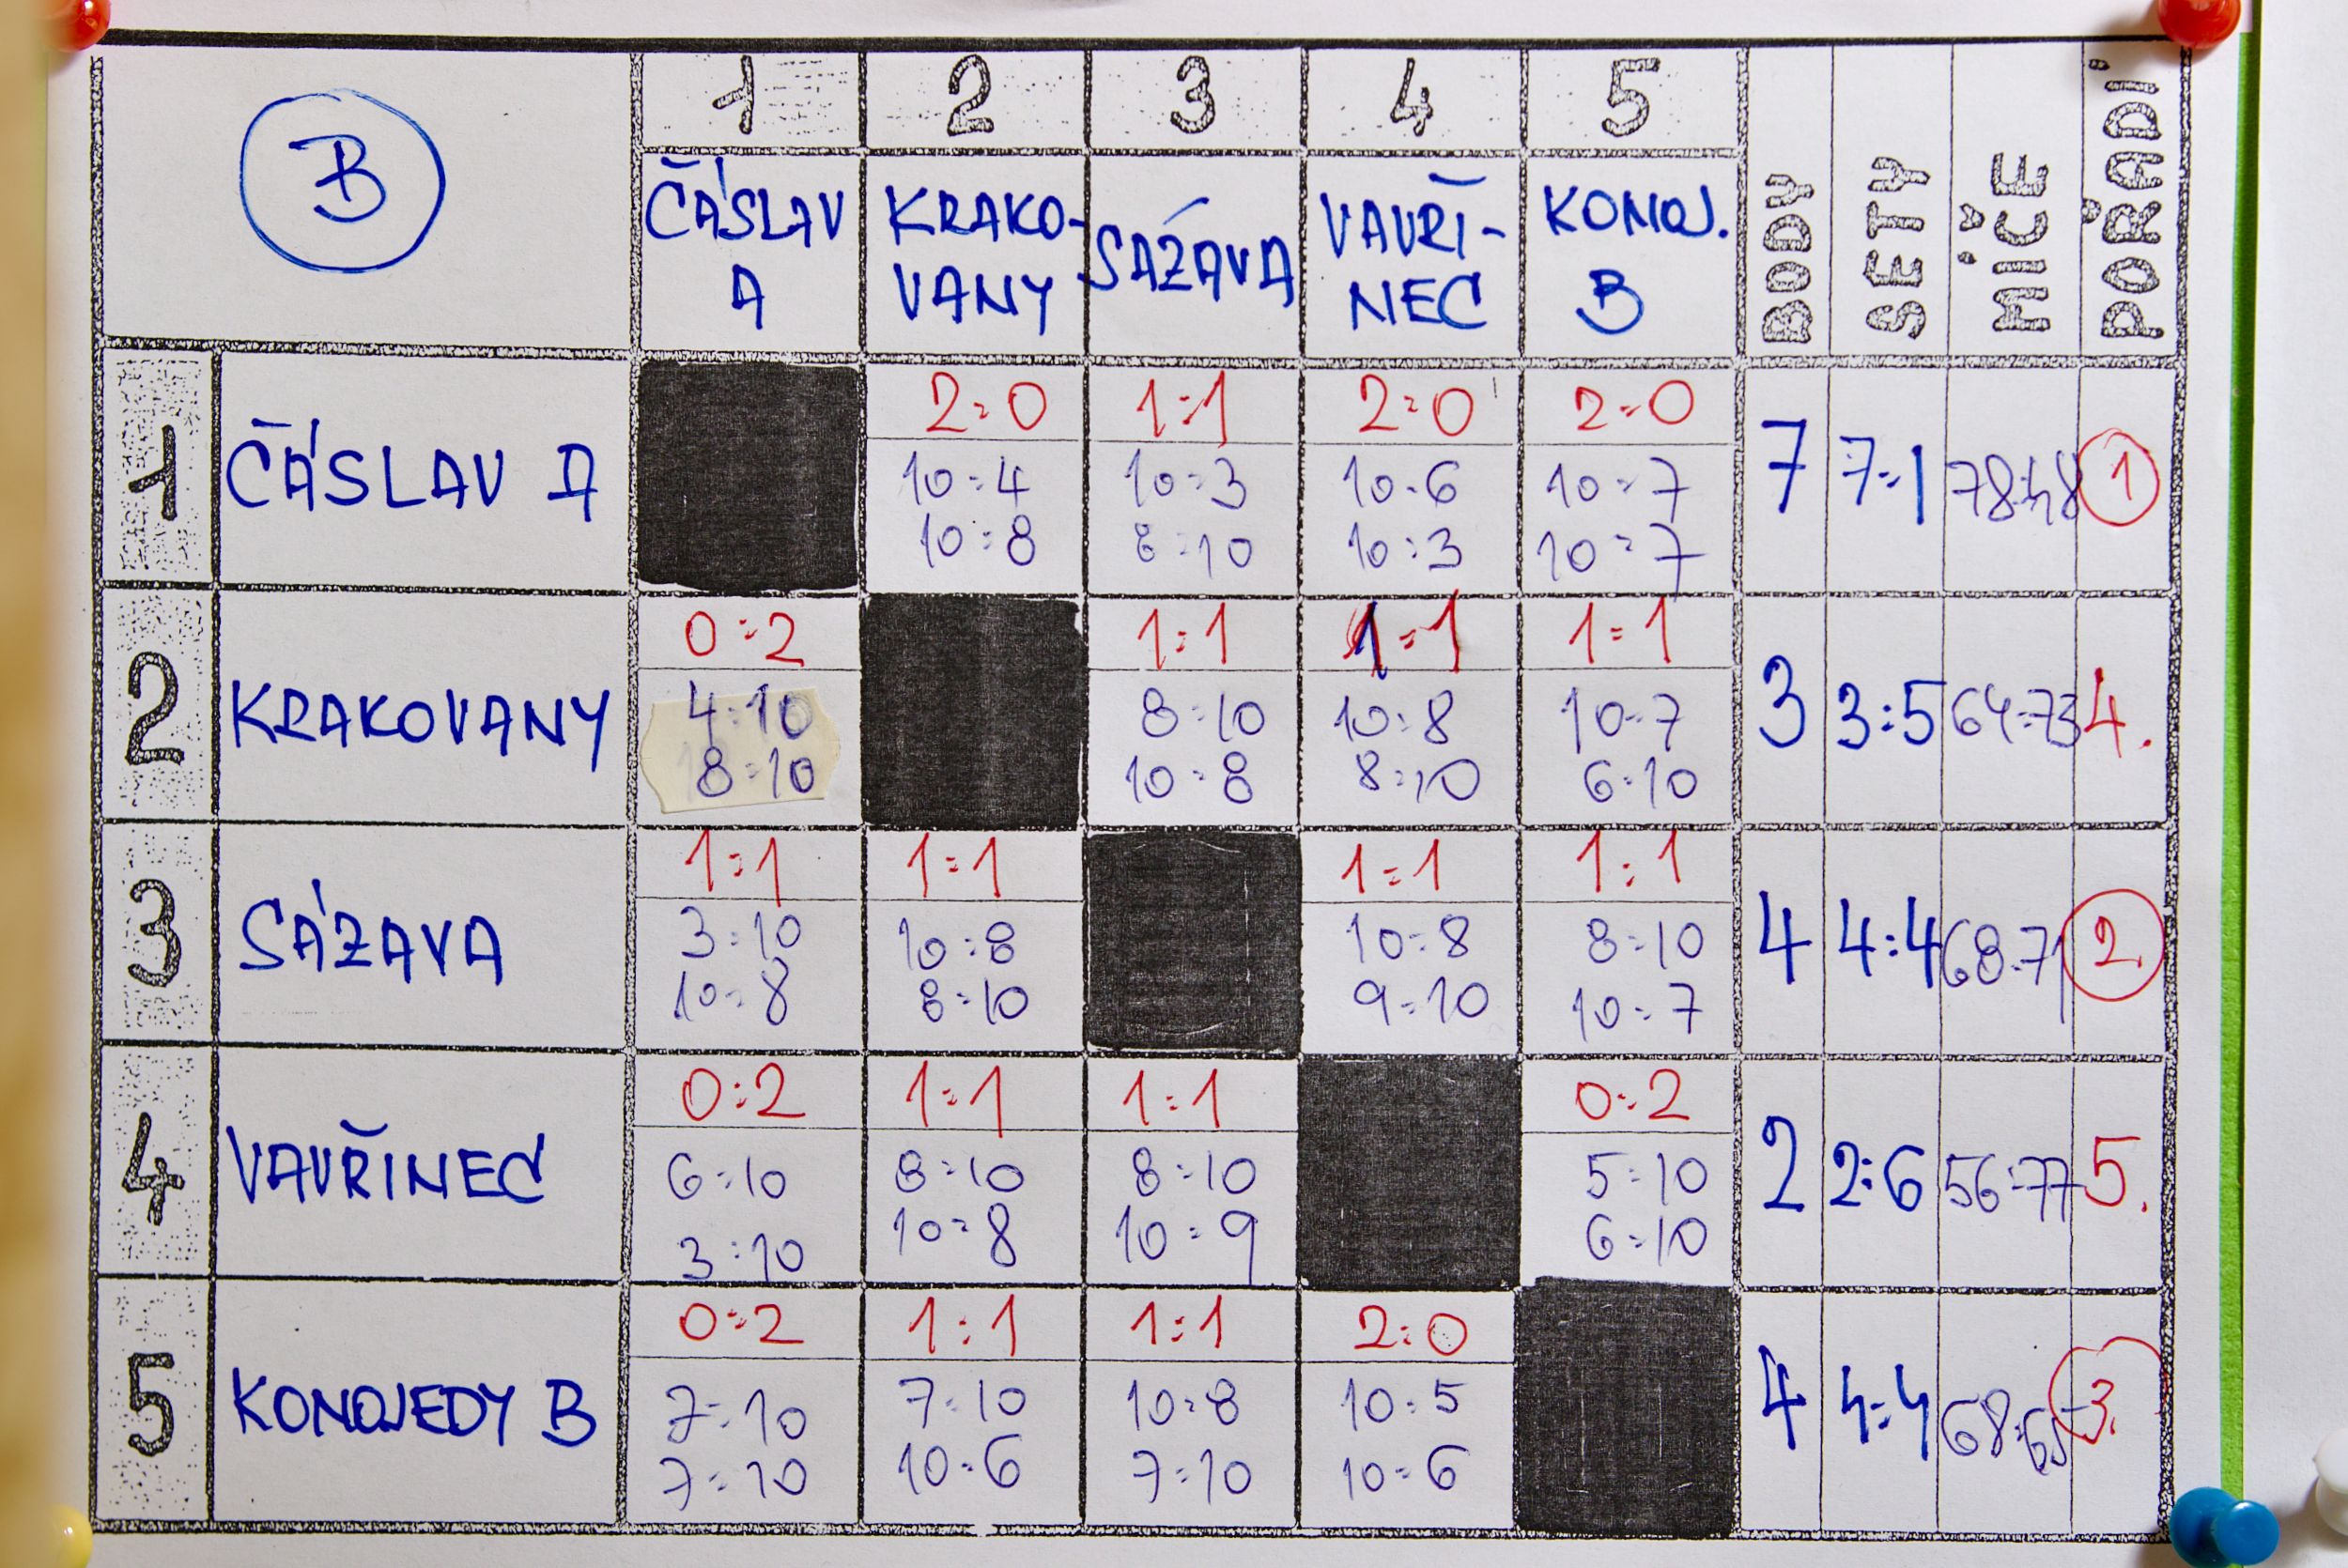 B
1 2 3 4 5
ČÁSLAV A
KRAKO-
VANY
SÁZAVA
VAVŘI-
NEC
KONOJ.
B
BODY
SETY
MÍČE
POŘADÍ
1 ČÁSLAV A
2:0 1:1 2:0 2:0
10:4 10:3 10:6 10:7
10:8 8:10 10:3 10:7
7 7:1 78:48 1
2 KRAKOVANY
0:2 1:1 1:1 1:1
4:10 8:10 10:8 10:7
8:10 10:8 8:10 6:10
3 3:5 64:73 4.
3 SÁZAVA
1:1 1:1 1:1 1:1
3:10 10:8 10:8 8:10
10:8 8:10 9:10 10:7
4 4:4 68:71 2.
4 VAVŘINEC
0:2 1:1 1:1 0:2
6:10 8:10 8:10 5:10
3:10 10:8 10:9 6:10
2 2:6 56:77 5.
5 KONOJEDY B
0:2 1:1 1:1 2:0
7:10 7:10 10:8 10:5
7:10 10:6 7:10 10:6
4 4:4 68:65 3.